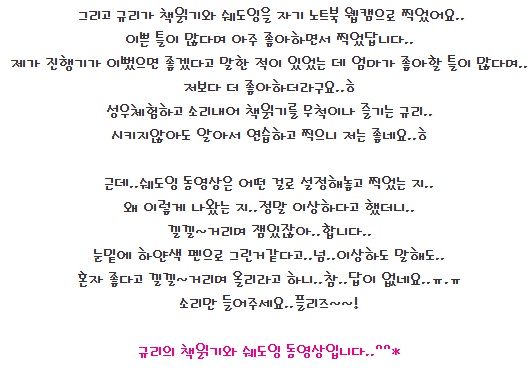 그리고 규리가 책읽기와 쉐도잉을 자기 노트북 웹캠으로 찍었어요..
이쁜 틀이 많다며 아주 좋아하면서 찍었답니다..
제가 진행기가 이뻤으면 좋겠다고 말한 적이 있었는 데 엄마가 좋아할 틀이 많다며..
저보다 더 좋아하더라구요..ㅎ
성우체험하고 소리내어 책읽기를 무척이나 즐기는 규리..
시키지않아도 알아서 연습하고 찍으니 저는 좋네요..ㅎ
근데..쉐도잉 동영상은 어떤 걸로 설정해놓고 찍었는 지..
왜 이렇게 나왔는 지..정말 이상하다고 했더니..
낄낄~거리며 잼있잖아..합니다..
눈밑에 하얀색 펜으로 그린거같다고..넘..이상하도 말해도..
혼자 좋다고 낄낄~거리며 올리라고 하니..참..답이 없네요..ㅠ.ㅠ
소리만 들어주세요..플리즈~~!
규리의 책읽기와 쉐도잉 동영상입니다..^^*